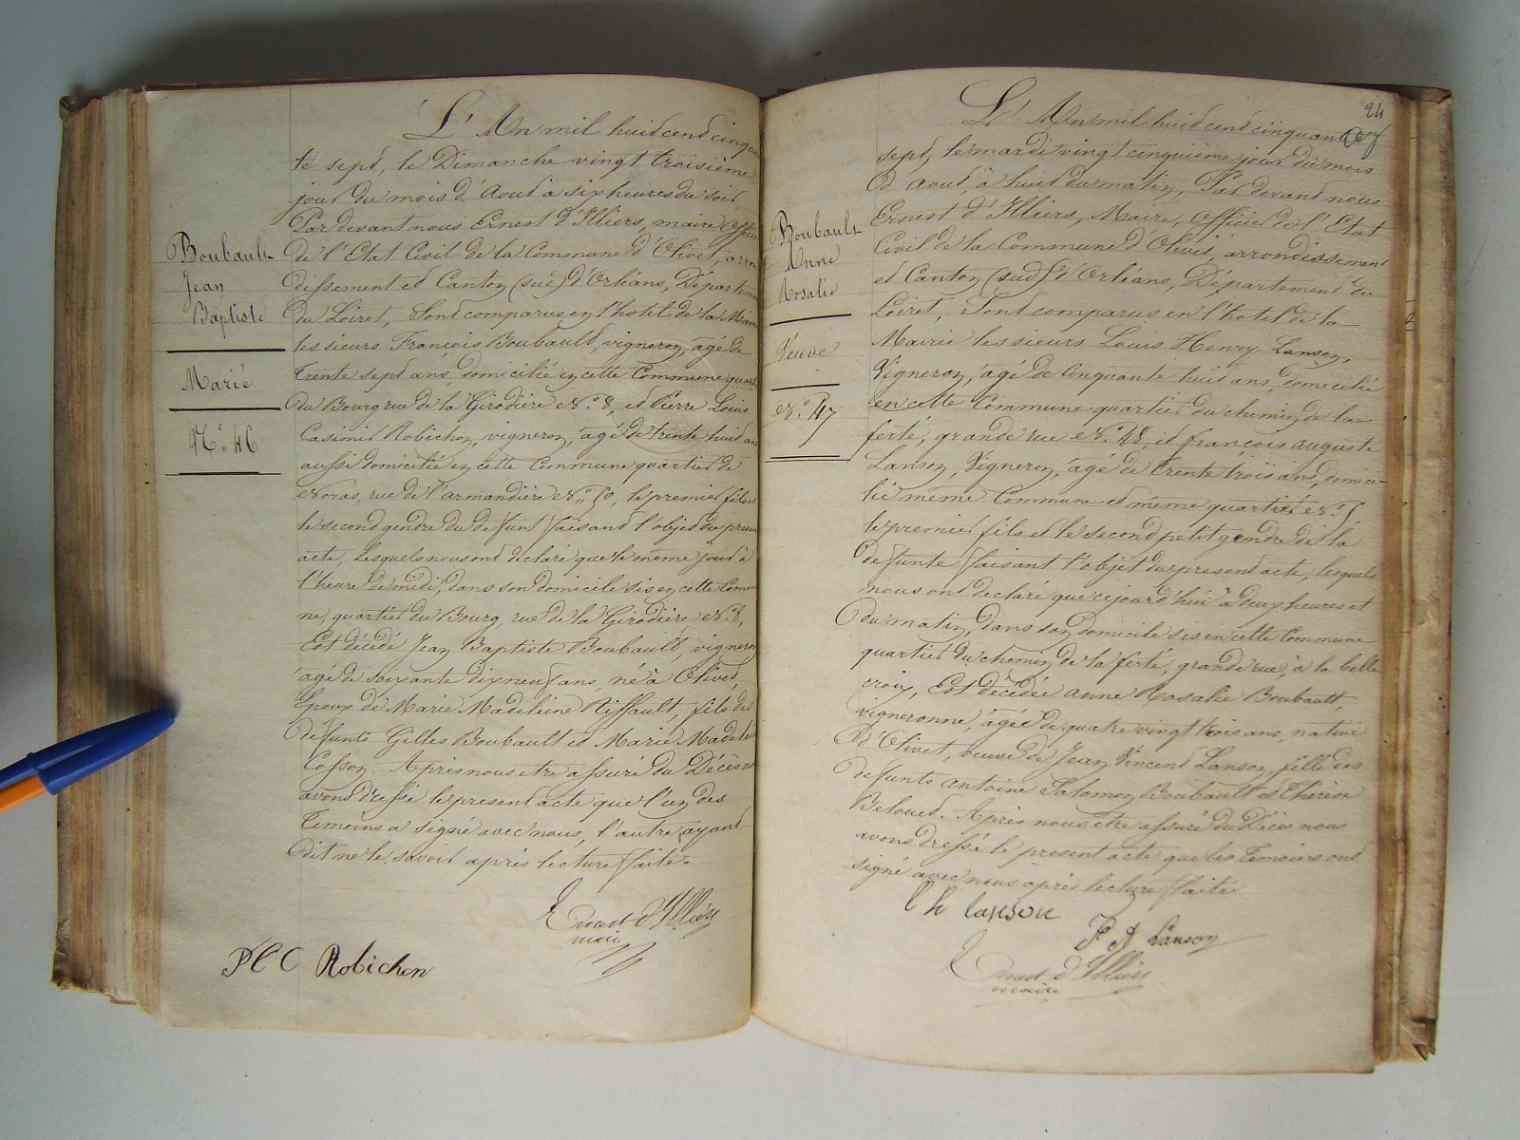 Boubault
Jean
Baptiste
Marié
N.° 46
L'An mil huit cent cinquan
te sept, le Dimanche vingt troisième
jour du mois d'Aout à six heures du soir
Par devant nous Ernest d'Illiers, maire officier
de l'Etat Civil de la Commune d'Olivet, arron
dissement et Canton (sud) d'Orléans, Département
du Loiret, Sont comparus en l'hotel de la Mairie
les sieurs François Boubault, vigneron, agé de
trente sept ans, domicilié en cette Commune quartier
du Bourg rue de la Girodière N.° 8, et Pierre Louis
Casimir Robichon, vigneron, agé de trente huit ans
aussi domicilié en cette Commune quartier de
rue de l'armandière N.° le premier fils et
le second gendre du defunt faisant l'objet du present
acte, Lesquels nous ont declaré que le même jour à
l'heure de midi, dans son domicile sis en cette Commu
ne, quartier du Bourg, rue de la Girodière N.° 8,
Est décédé Jean Baptiste Boubault, vigneron
agé de soixante dix neuf ans, né à Olivet,
Epoux de Marie Madeleine Riffault, fils de
defunts Gilles Boubault et Marie Madelei
Cosson. Après nous etre assuré du Décès nous
avons dressé le present acte que l'un des
temoins a signé avec nous, l'autre ayant
dit ne le savoir après lecture faite.
Ernest d'Illiers
maire
P L C Robichon
24
Boubault
Anne
Rosalie
Veuve
N.° 47
L'An mil huit cent cinquante
sept, le mardi vingt cinquième jour du mois
d'aout, à huit du matin, Par devant nous
Ernest d'Illiers, Maire, officier de l'Etat
Civil de la Commune d'Olivet, arrondissement
et Canton (sud) d'Orléans, Département du
Loiret, Sont comparus en l'hotel de la
Mairie les sieurs Louis Henry Lanson,
Vigneron, agé de Cinquante huit ans, domicilié
en cette Commune quartier du chemin de la
ferté, grande rue N.° 48, et françois auguste
Lanson, Vigneron, agé de trente trois ans, domici
lié même Commune et même quartier N.°
le premier fils et le second petit gendre de la
defunte faisant l'objet du present acte, lesquels
nous ont declaré que ce jourd'hui à deux heures et
du matin, dans son domicile sis en cette Commune
quartier du chemin de la ferté, grande rue, à la belle
croix, Est décédée anne Rosalie Boubault,
vigneronne, agée de quatre vingt trois ans, native
d'Olivet, veuve de Jean Vincent Lanson, fille des
defunts antoine Salomon Boubault et Thérèse
Belouet. Après nous etre assuré du Décès nous
avons dressé le present acte que les temoins ont
signé avec nous après lecture faite
l h lanson
F A Lanson
Ernest d'Illiers
maire